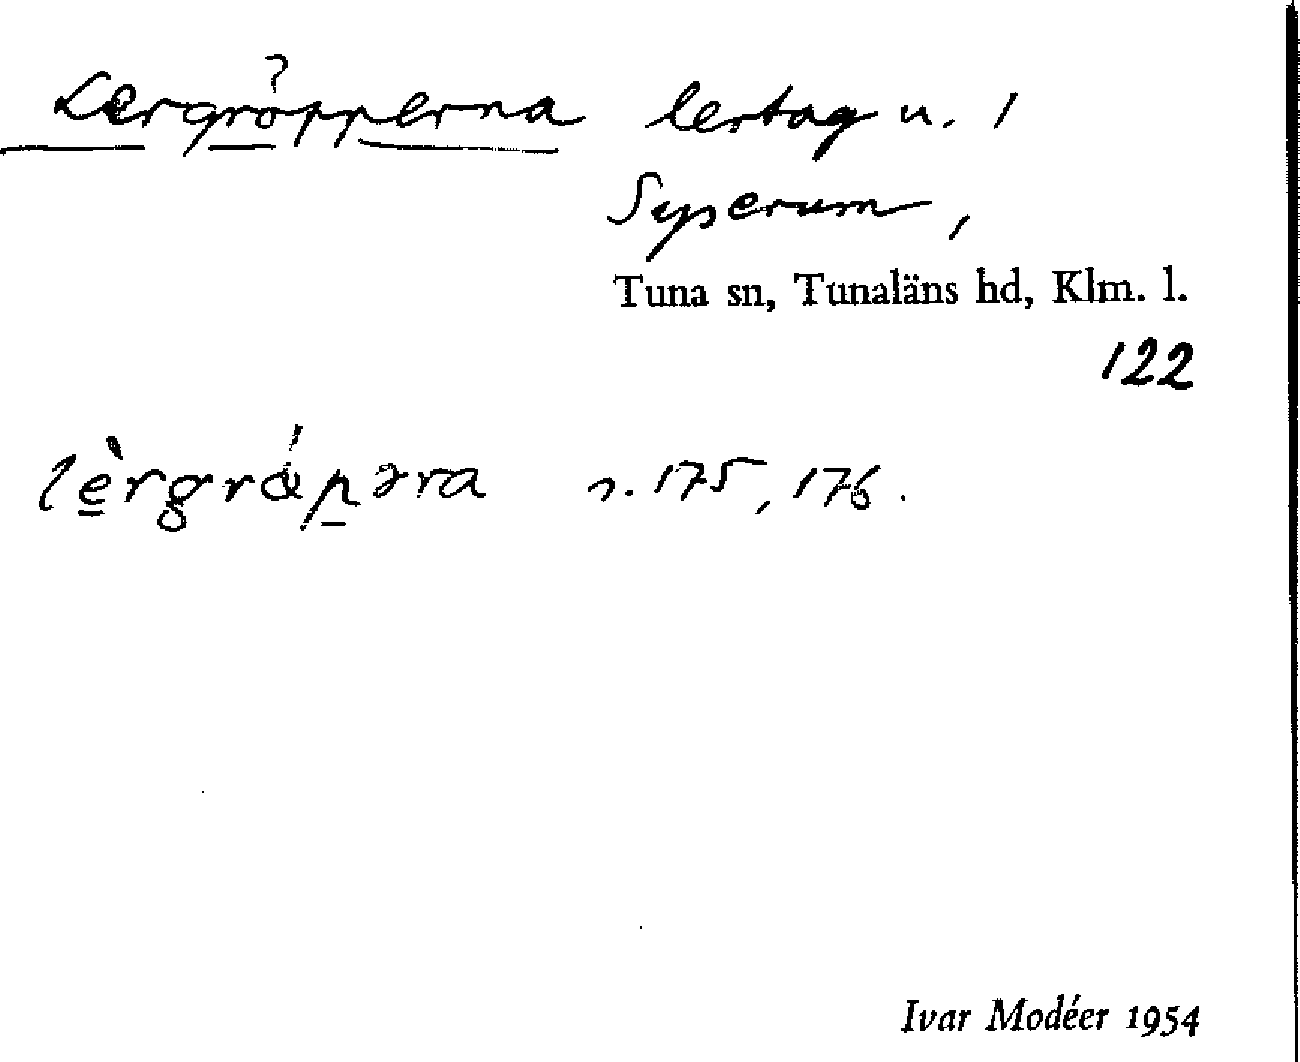 ?
Lergröpperna lertag u. 1
Syserum,
Tuna sn, Tunaläns hd, Klm. l.
122
s. 175, 176.
Ivar Modéer 1954